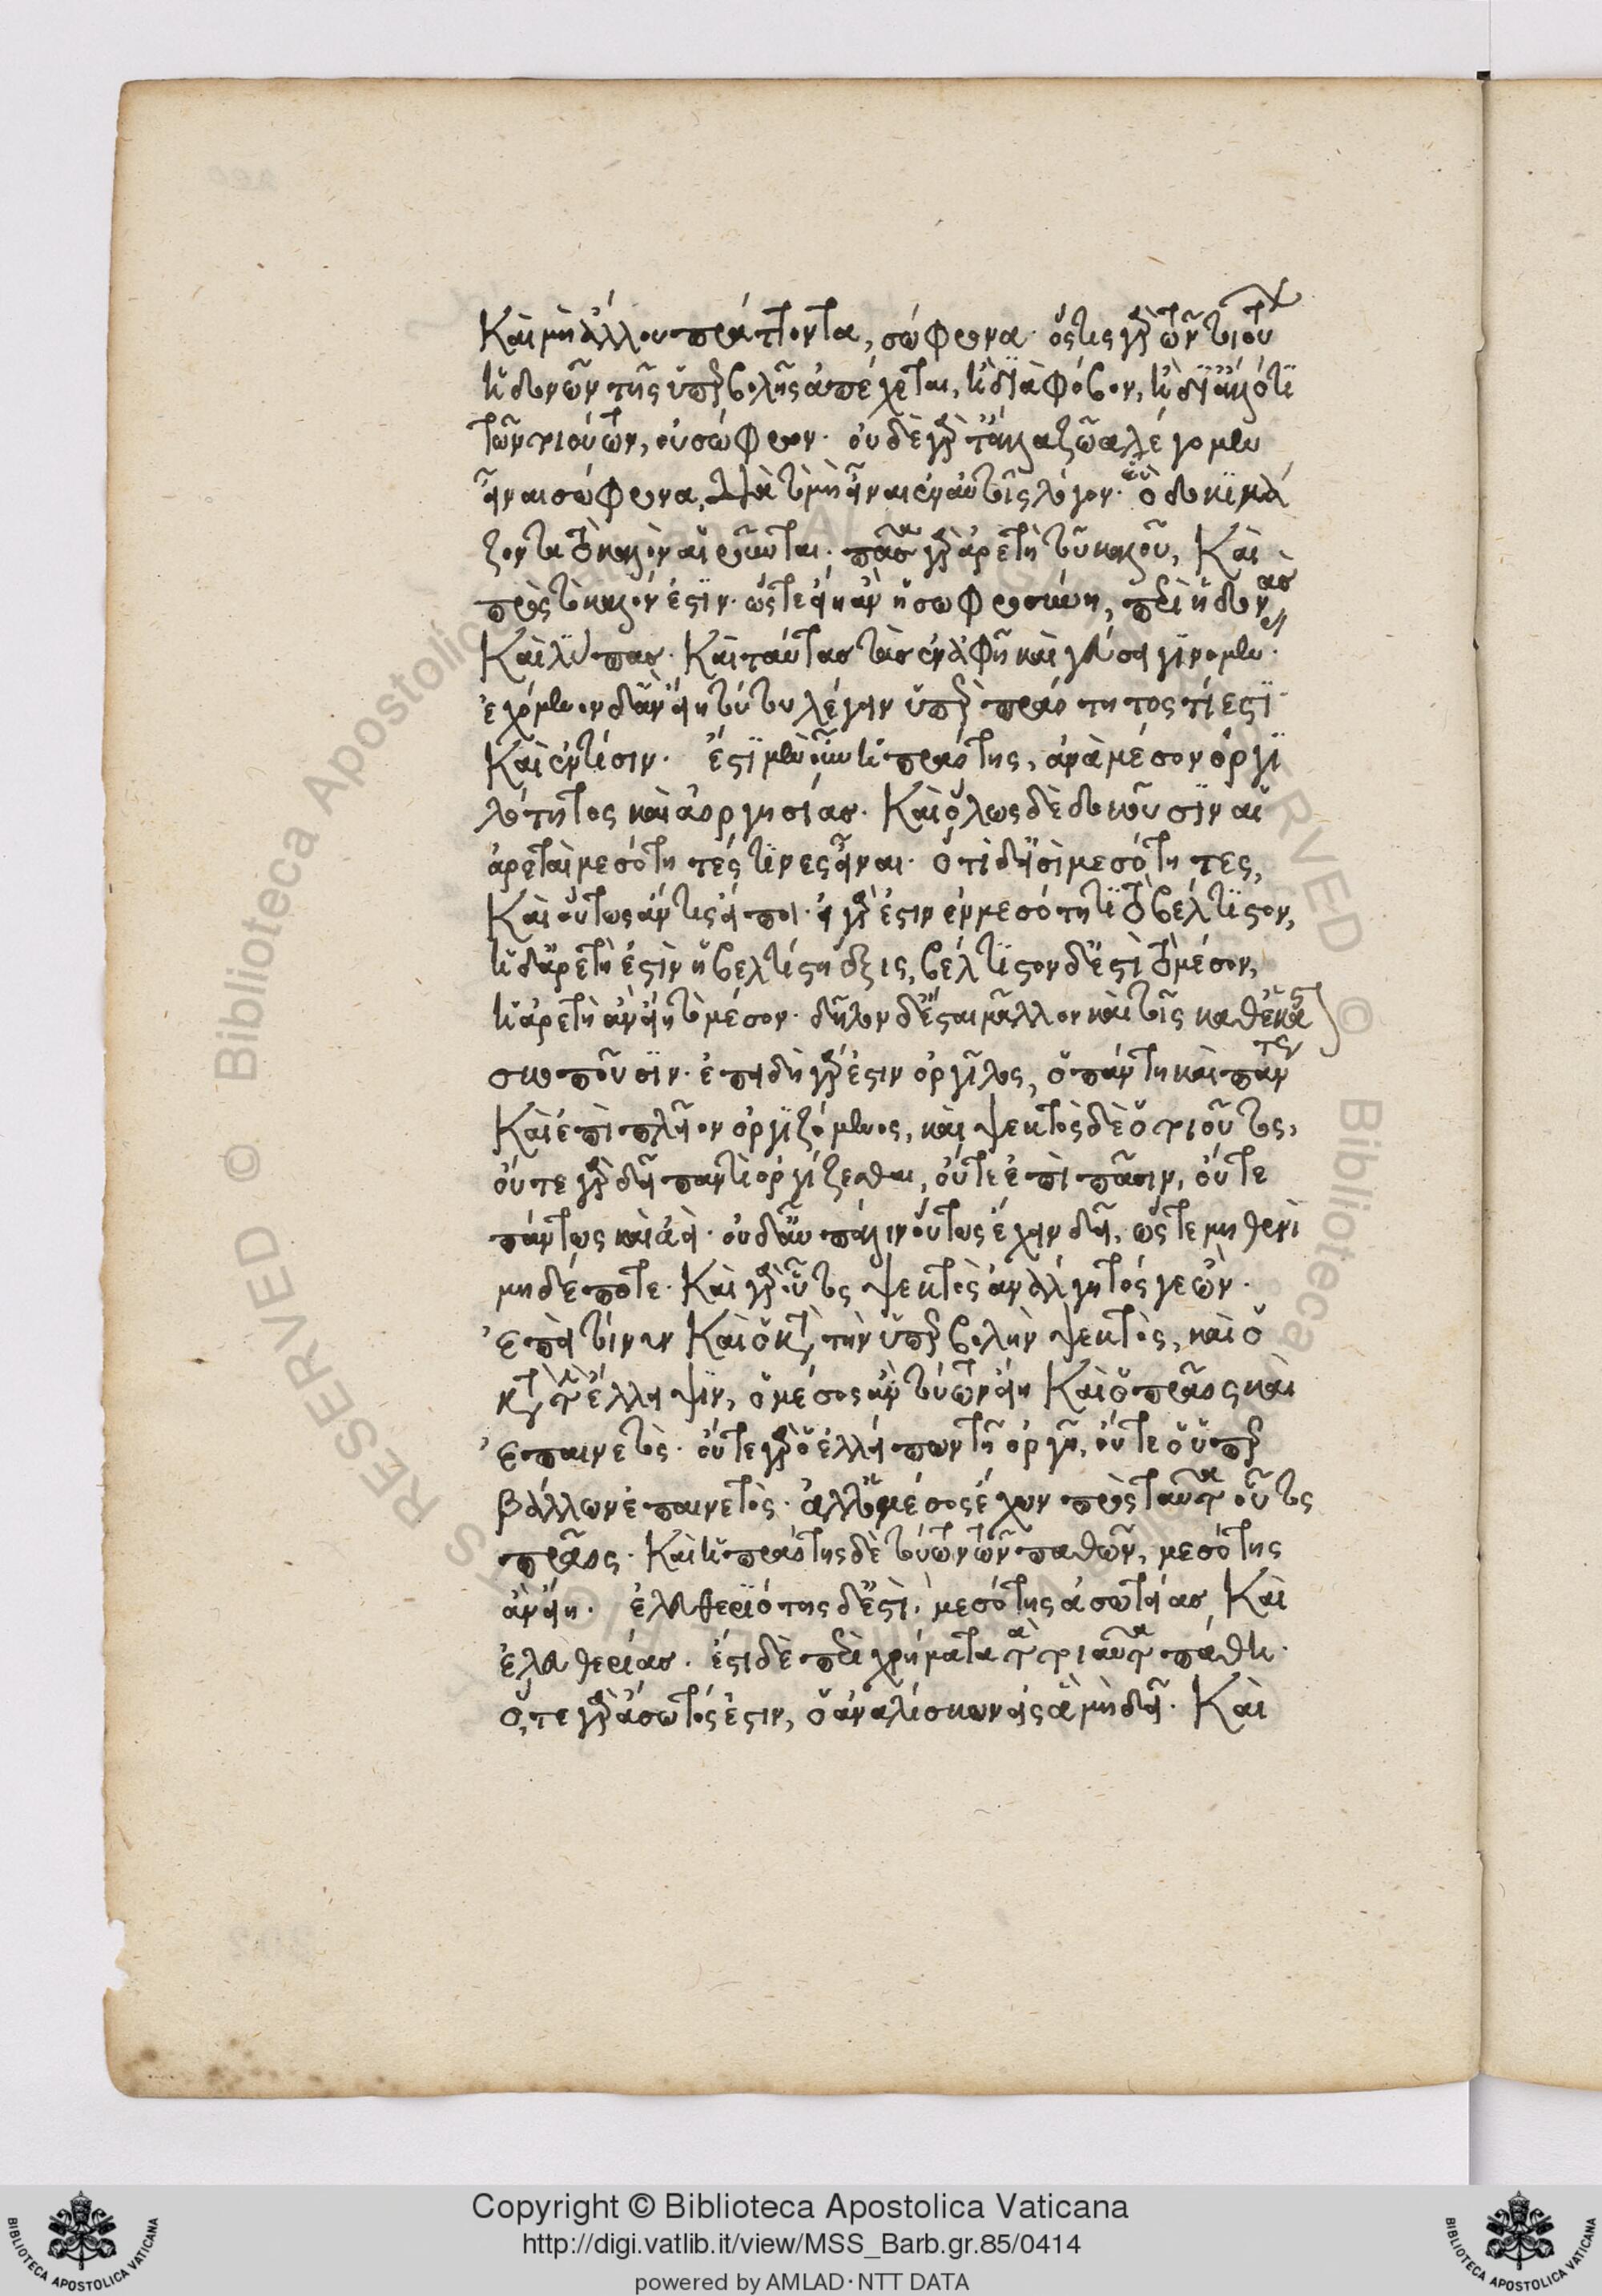 Καὶ μὴ ἄλλου πράττοντα, σώφρονα· ὅστις γὰρ τῶν τοιούτων
ἡδονῶν τῆς ὑπερβολῆς ἀπέχεται, ἢ διὰ φόβον, ἢ δι' ἄλλό τι
τῶν τοιούτων, οὐ σώφρων. οὐδὲ γὰρ τἄλλα ζῶα λέγομεν
εἶναι σώφρονα, διὰ τὸ μὴ εἶναι ἐν αὐτοῖς λόγον· ᾧ δοκιμά
ζοντα τὸ καλὸν αἱροῦνται. πᾶσα γὰρ ἀρετὴ τοῦ καλοῦ, Καὶ
πρὸς τὸ καλόν ἐστιν. ὥστε εἴη ἂν ἡ σωφροσύνη, περὶ ἡδονὰς
Καὶ λύπας. Καὶ ταύτας τὰς ἐν ἁφῇ καὶ γεύσει γινομεν.
ἐχόμενον δ' ἂν εἴη τούτου λέγειν ὑπὲρ πραότητος τί ἐστι
Καὶ ἐν τίσιν. ἔστι μὲν οὖν ἡ πραότης, ἀνὰ μέσον ὀργι
λότητος καὶ ἀοργησίας. Καὶ ὅλως δὲ δοκοῦσιν αἱ
ἀρεταὶ μεσότητές τινες εἶναι. ὅτι δ' εἰσὶ μεσότητες,
Καὶ οὕτως ἄν τις εἴποι. εἰ γάρ ἐστιν ἐν μεσότητι τὸ βέλτιστον,
ἡ δ' ἀρετή ἐστὶν ἡ βελτίστη ἕξις, βέλτιστον δ' ἐστὶ τὸ μέσον,
ἡ ἀρετὴ ἂν εἴη τὸ μέσον. δῆλον δ' ἔσται μᾶλλον καὶ τοῖς καθ' ἕκαστ
σκοποῦσιν. ἐπειδὴ γάρ ἐστιν ὀργίλος, ὁ πάντη καὶ πάντως
Καὶ ἐπὶ πλεῖον ὀργιζόμενος, καὶ ψεκτὸς δὲ ὁ τοιοῦτος,
οὔτε γὰρ δεῖ παντὶ ὀργίζεσθαι, οὔτε ἐπὶ πᾶσιν, οὔτε
πάντως καὶ ἀεί. οὐδ' αὖ πάλιν οὕτως ἔχειν δεῖ, ὥστε μηθενὶ
μηδέποτε. Καὶ γὰρ οὗτος ψεκτὸς ἀνάλγητός γε ὤν.
ἐπεὶ τοίνυν Καὶ ὁ κατὰ τὴν ὑπερβολὴν ψεκτὸς, καὶ ὁ
κατὰ τὴν ἔλλειψιν, ὁ μέσος ἂν τούτων εἴη Καὶ ὁ πρᾶος καὶ
ἐπαινετὸς. οὔτε γὰρ ὁ ἐλλείπων τῇ ὀργῇ, οὔτε ὁ ὑπερ
βάλλων ἐπαινετὸς. ἀλλ' ὁ μέσος ἔχων πρὸς ταῦτα οὗτος
πρᾶος. Καὶ ἡ πραότης δὲ τούτων τῶν παθῶν, μεσότης
ἂν εἴη. ἐλευθεριότης δ' ἐστὶ μεσότης ἀσωτείας Καὶ
ἐλευθερίας. ἔστι δὲ περὶ χρήματα τὰ τοιαῦτα πάθη.
ὅ, τε γὰρ ἄσωτός ἐστιν, ὁ ἀναλίσκων εἰς ἃ μὴ δεῖ. Καὶ
Copyright © Biblioteca Apostolica Vaticana
http://digi.vatlib.it/view/MSS_Barb.gr.85/0414
powered by AMLAD·NTT DATA